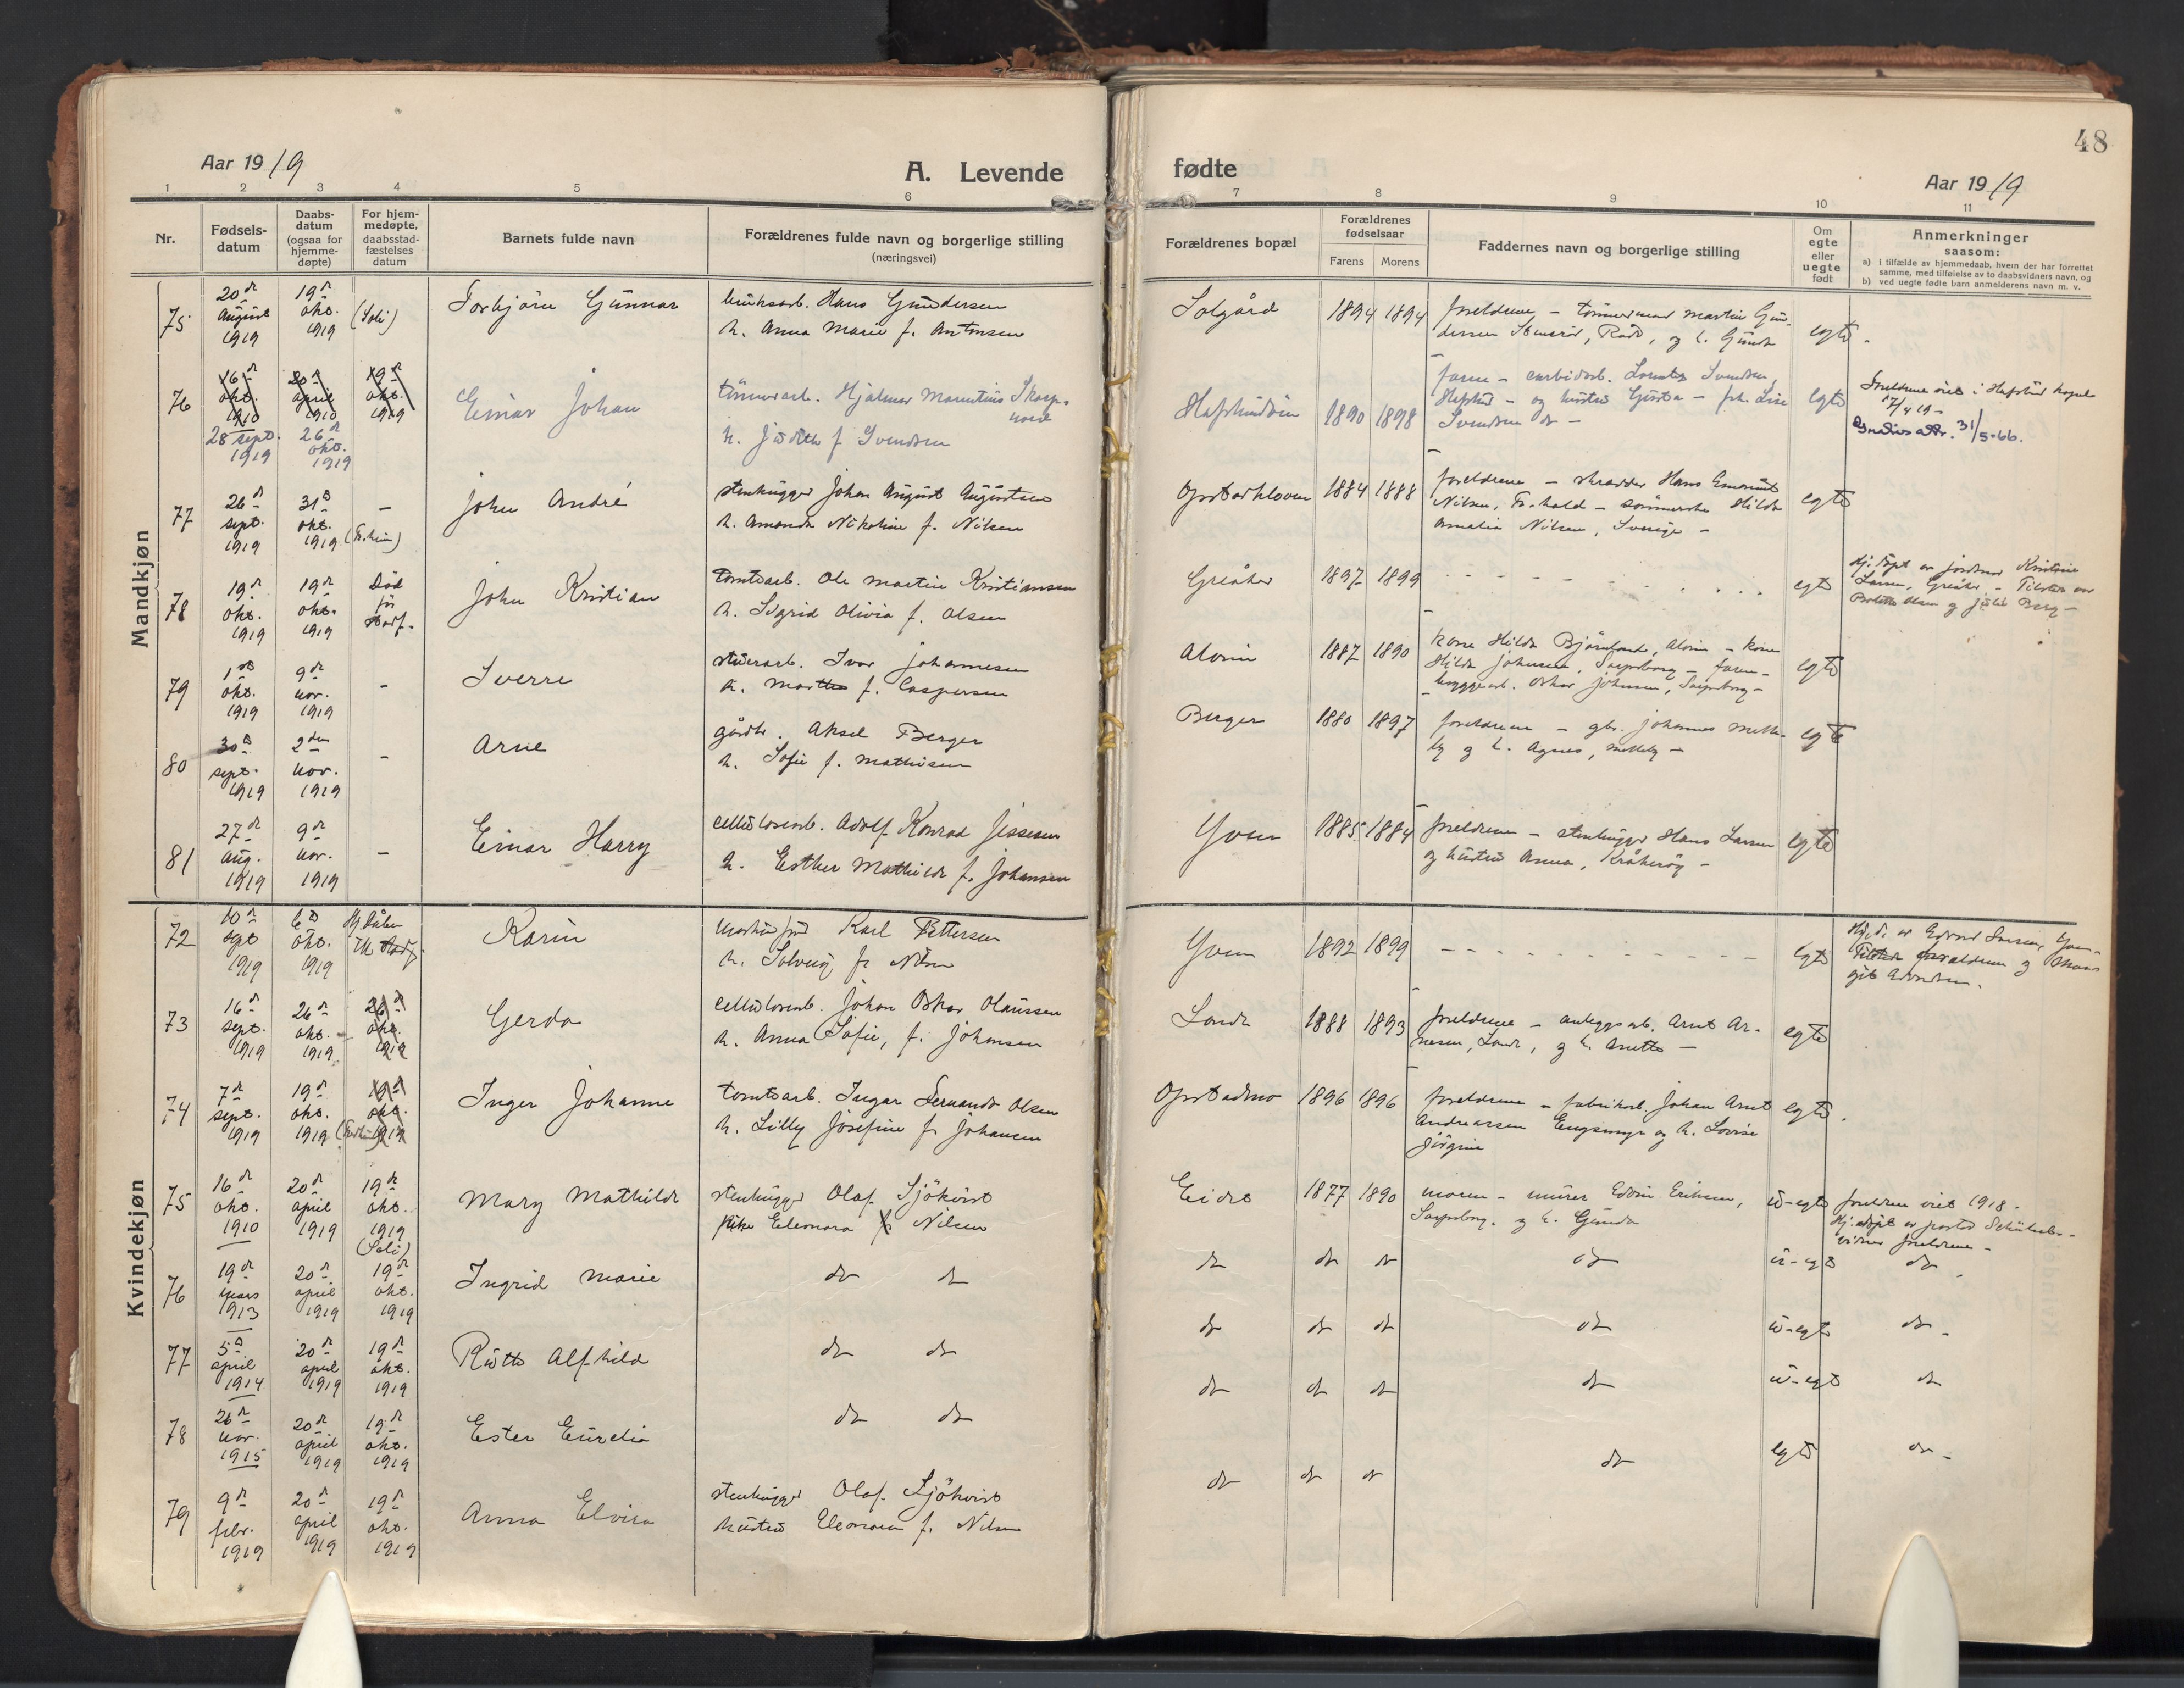 48
Aar 1919
A. Levende fødte
Aar 1919
1 2 3 4 5 6 7 8 9 10 11
Nr.
Fødsels-
datum
Daabs-
datum
(ogsaa for
hjemme-
døpte)
For hjem-
medøpte,
daabsstad-
fæstelses
datum
Barnets fulde navn
Forældrenes fulde navn og borgerlige stilling
(næringsvei)
Forældrenes bopæl
Forældrenes
fødselsaar
Farens Morens
Faddernes navn og borgerlige stilling
Om
egte
eller
uegte
født
Anmerkninger
saasom:
a) i tilfælde av hjemmedaab, hvem der har forrettet
samme, med tilføielse av to daabsvidners navn, og
b) ved uegte fødte barn anmelderens navn m. v.
Mandkjøn
75
20de
august
1919
19de
okt.
1919
(Soli)
Torbjørn Gunnar
bruksarb. Hans Gundersen
h. Anna Marie f. Antonsen
Solgård
1894 1894
foreldrene – tømmermand Martin Gun-
dersen Stensrød, Råde, og h. Gunda
egte.
76
16de
okt.
1910
20de
april
1910
19de
okt.
1919
28 sept.
1919
26de
okt.
1919
Einar Johan
tømmerarb. Hjalmar Mauritius Skarp-
nord
h. Judith f Svendsen
Hafslundsøen
1890 1898
faren – carbidarb. Svendsen,
Hafslund – og hustru Gusta – frk. Lise
Svendsen do –
egte
Foreldrene viet i Hafslund kapel
17/4 19 –
attr. 31/5-66.
77
26de
sept.
1919
31te
okt.
1919
–
John André
stenhugger Johan August Augustsen
h. Amanda Nikoline f. Nilsen
Opstadkloven
1884 1888
foreldrene – skrædder Hans Emanuel
Nilsen, Fr.hald – sömmerske Hilda
Amalia Nilsen, Sverige –
egte
78
19de
okt.
1919
19de
okt.
1919
(Fr.heim)
Död
för
stadf.
John Kristian
tomtearb. Ole Martin Kristiansen
h. Sigrid Olivia f. Olsen
Greåker
1897 1899
– – – – – –
egte
Hj. döpt av jordmor Kristine
Larsen, Greåker. – Tilstede var
Olsen og Julie Berg –
79
1ste
okt.
1919
9de
nov.
1919
–
Sverre
Ivar Johannesen
h. Marthe f. Caspersen
Alvim
1887 1890
kone Hilda Bjørnland, Alvim – kone
Hilda Johnsen, Sarpsborg – faren –
bryggearb. Oskar Johnsen, Sarpsborg –
egte
80
30te
sept.
1919
2den
nov.
1919
–
Arne
gårdbr. Aksel Berger
h. Sofie f. Mathisen
Berger
1880 1897
foreldrene – gbr. Johannes Melle-
by og h. Agnes, Melleby –
egte
81
27de
aug.
1919
9de
nov.
1919
–
Einar Harry
cellulosearb. Adolf Konrad Jessesen
h. Esther Mathilde f. Johansen
Yven
1885 1884
foreldrene – stenhugger Hans Larsen
og hustru Anna, Kråkerøy –
egte
Kvindekjøn
72
10de
sept
1919
6te
okt.
1919
Hj.dåben
stadf.
Karin
Karl Pettersen
h. Solveig f. Nilsen
Yven
1892 1899
– – – – – –
egte
Hj. d. av Edvard Larsen, Yven.
Tilstede foreldrene og
73
16de
sept.
1919
26de
okt.
1919
26de
okt.
1919
Gerda
cellulosearb. Johan Oskar Olaussen
h. Anna Sofie, f. Johansen
Lande
1888 1893
foreldrene – anleggsarb. Arnt Ar-
nesen, Lande, og h. Anette –
egte
74
7de
sept.
1919
19de
okt.
1919
19de
okt.
1919
Inger Johanne
tomtearb. Ingar Fernando Olsen
h. Lilly Josefine f. Johansen
Opstadmo
1896 1896
foreldrene – fabrikarb. Johan Arnt
Andreassen Engsmyr og h. Lovise
Jörgine
egte.
75
16de
okt.
1910
20de
april
1919
19de
okt.
1919
(Soli)
Mary Mathilde
stenhugger Olaf Sjökvist
pike Eleonora f Nilsen
Eidet
1877 1890
moren – murer Edvin Eriksen,
Sarpsborg. og h. Gunda
u-egte
foreldrene viet 1918.
Hj. døpt av pastor
vidner foreldrene –
76
19de
mars
1913
20de
april
1919
19de
okt.
1919
Ingrid Marie
do do
do do do do
u-egte
do
77
5te
april
1914
20de
april
1919
19de
okt.
1919
Ruth Alfhild
do do
do do do do
u-egte
do –
78
26de
nov.
1915
20de
april
1919
19de
okt.
1919
Ester Eurelia
do do
do do do do
u-egte
do
79
9de
febr.
1919
20de
april
1919
19de
okt.
1919
Anna Elvira
stenhugger Olaf Sjökvist
hustru Eleonora f. Nilsen
do do do do
egte
do –